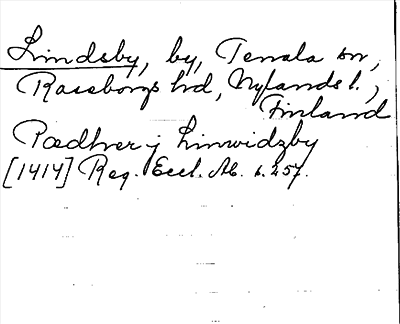 Lindsby, by, Tenala sn,
Raseborgs hd, Nylands l.,
Finland
Pædher j Linwidzby
[1414] Reg. Eccl. Ab. s. 257.